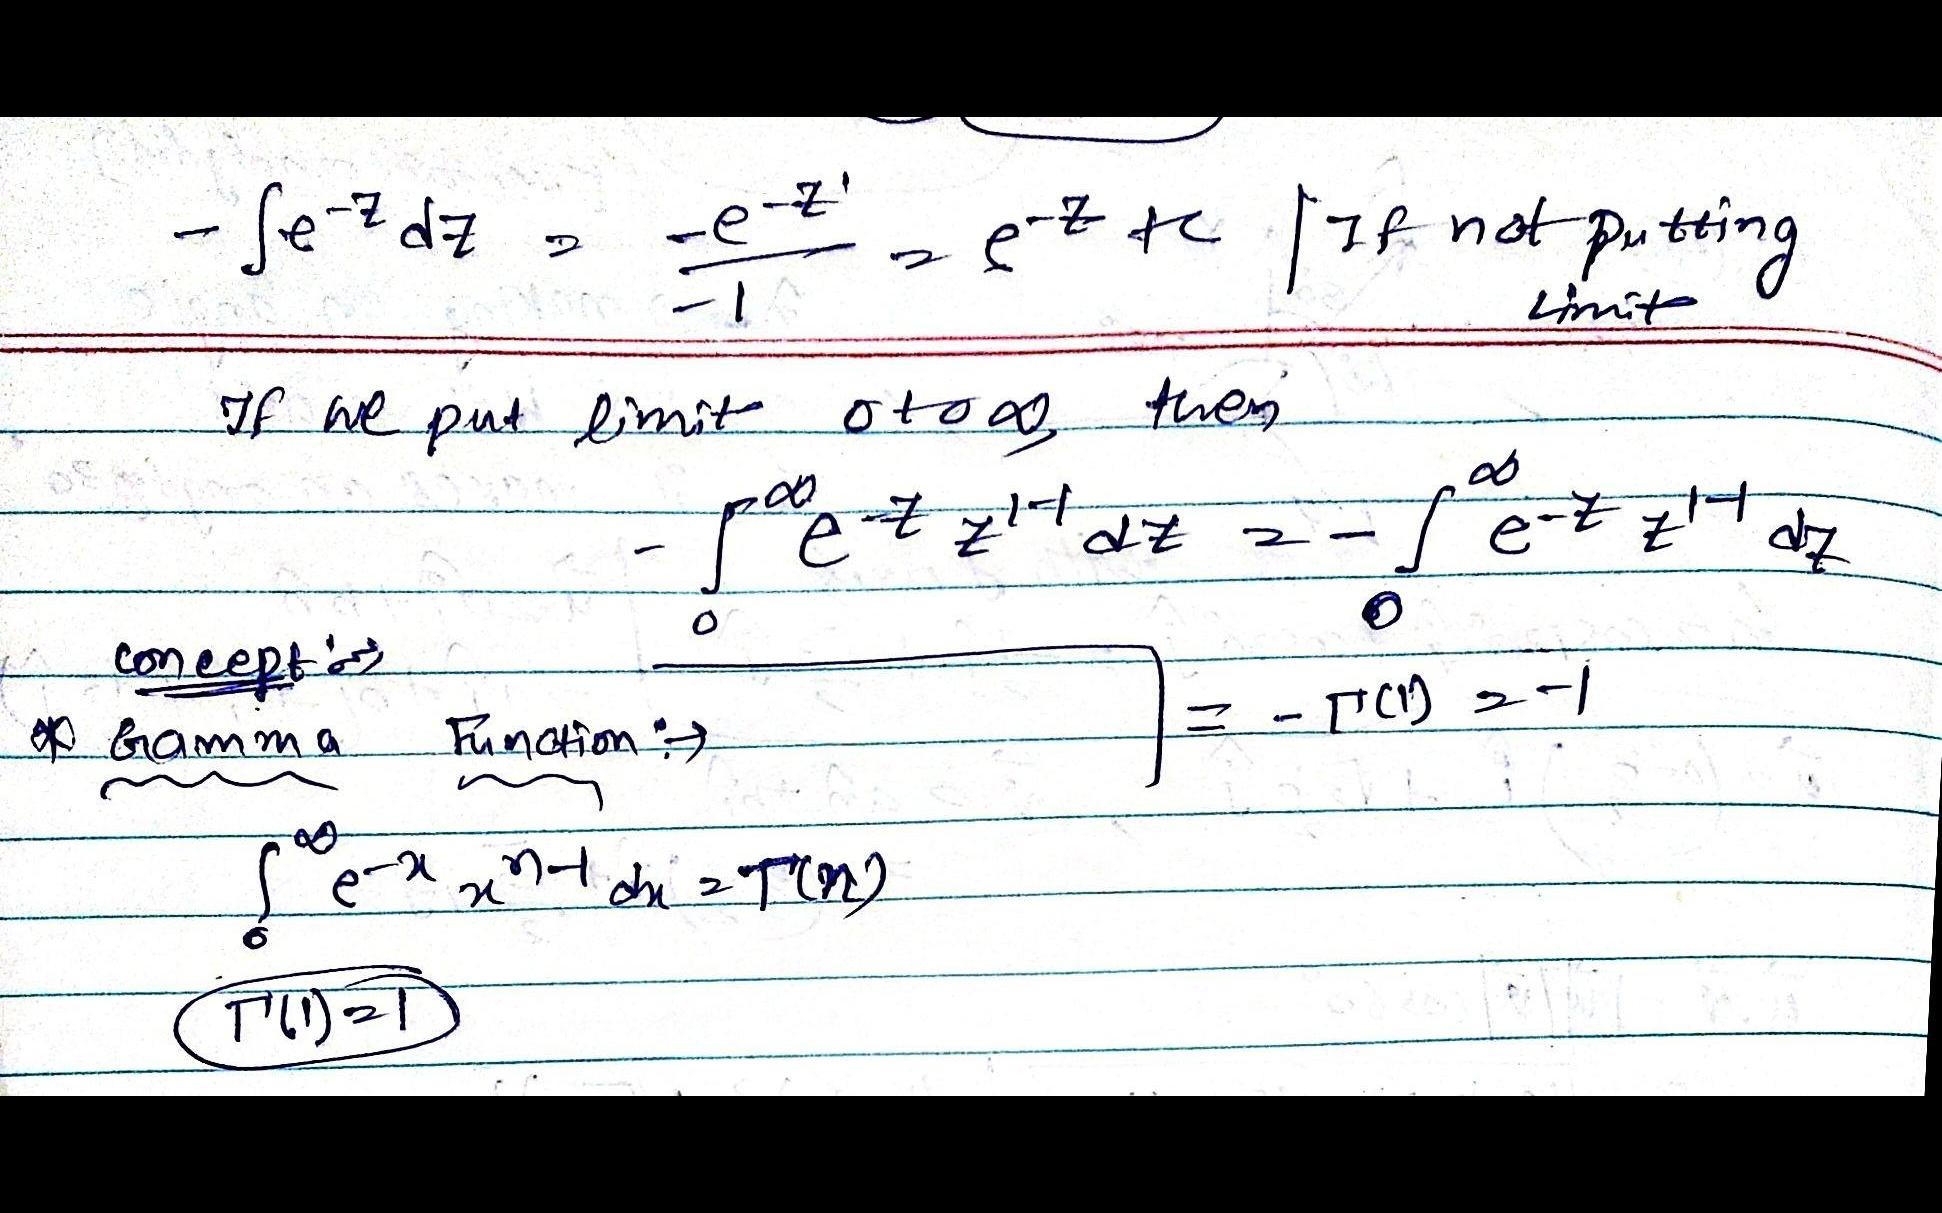 - ∫e^-z dz = -e^-z' / -1 = e^-z + c | If not putting
Limit
If we put limit 0 to ∞, then
- ∫₀^∞ e^-z z^1-1 dz = - ∫₀^∞ e^-z z^1-1 dz
concept :→
= - Γ(1) = -1
Gamma Function :→
∫₀^∞ e^-x x^n-1 dx = Γ(n)
Γ(1) = 1